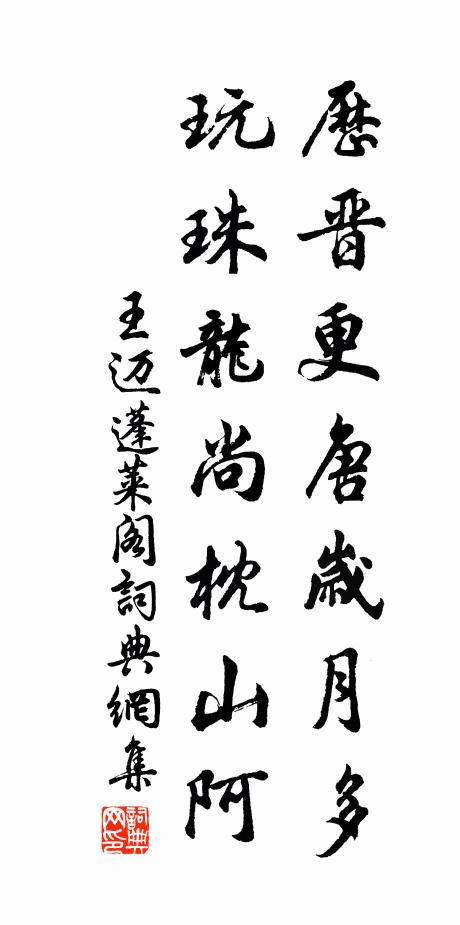 歷晋更唐歲月多
玩珠龍尚枕山阿
王迈蓬萊阁詞典網集
詞典
网印